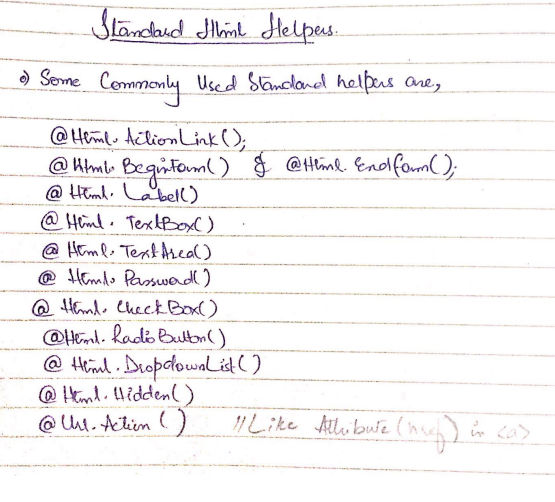 Standard Html Helpers.
Some Commonly Used Standard helpers are,
@Html.ActionLink();
@Html.BeginForm() & @Html.Endform();
@Html.Label()
@Html.TextBox()
@Html.TextArea()
@Html.Password()
@Html.CheckBox()
@Html.RadioButton()
@Html.DropdownList()
@Html.Hidden()
@Url.Action() //Like Attribute(href) in <a>